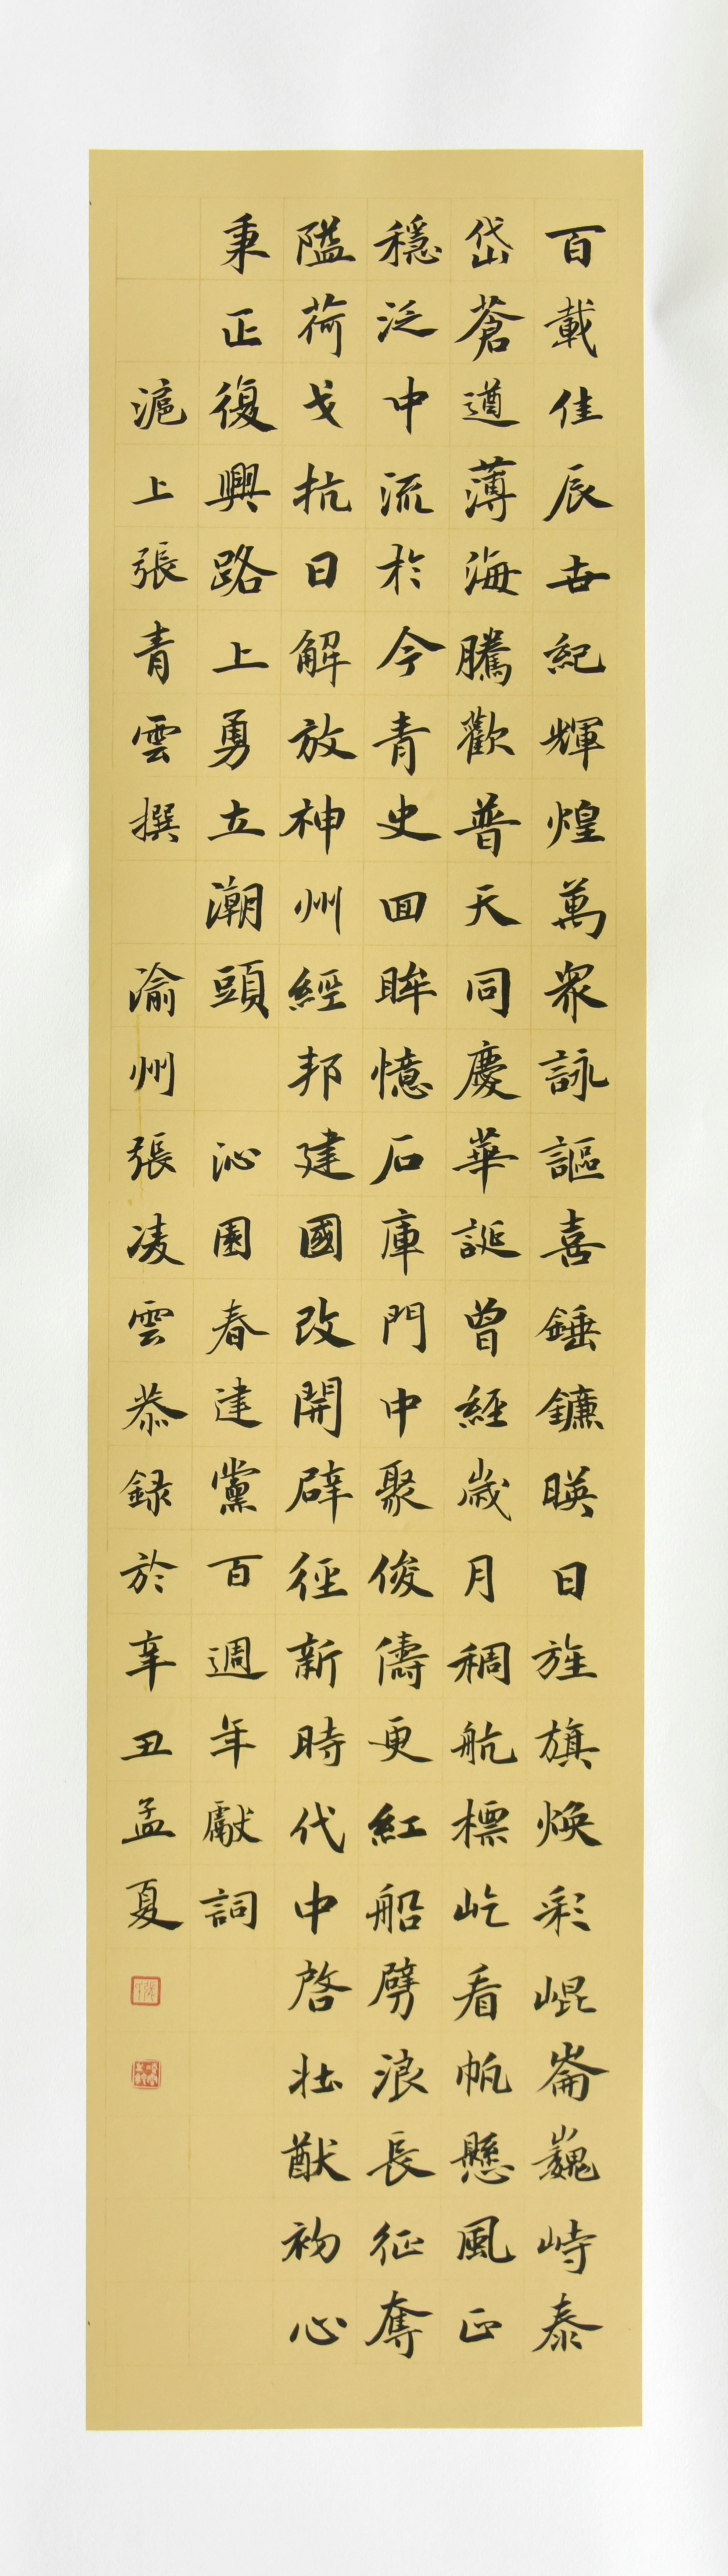 百載佳辰世紀輝煌萬眾詠謳喜錘鐮暎日旌旗煥彩崐崙巍峙泰
岱蒼遒薄海騰歡普天同慶華誕曾經歲月稠航標屹看帆懸風正
穩泛中流於今青史回眸憶石庫門中聚俊儔更紅船劈浪長征奪
隘荷戈抗日解放神州經邦建國改開辟徑新時代中啓壯猷初心
秉正復興路上勇立潮頭 沁園春建黨百週年獻詞
滬上張青雲撰 渝州張凌雲恭録於辛丑孟夏